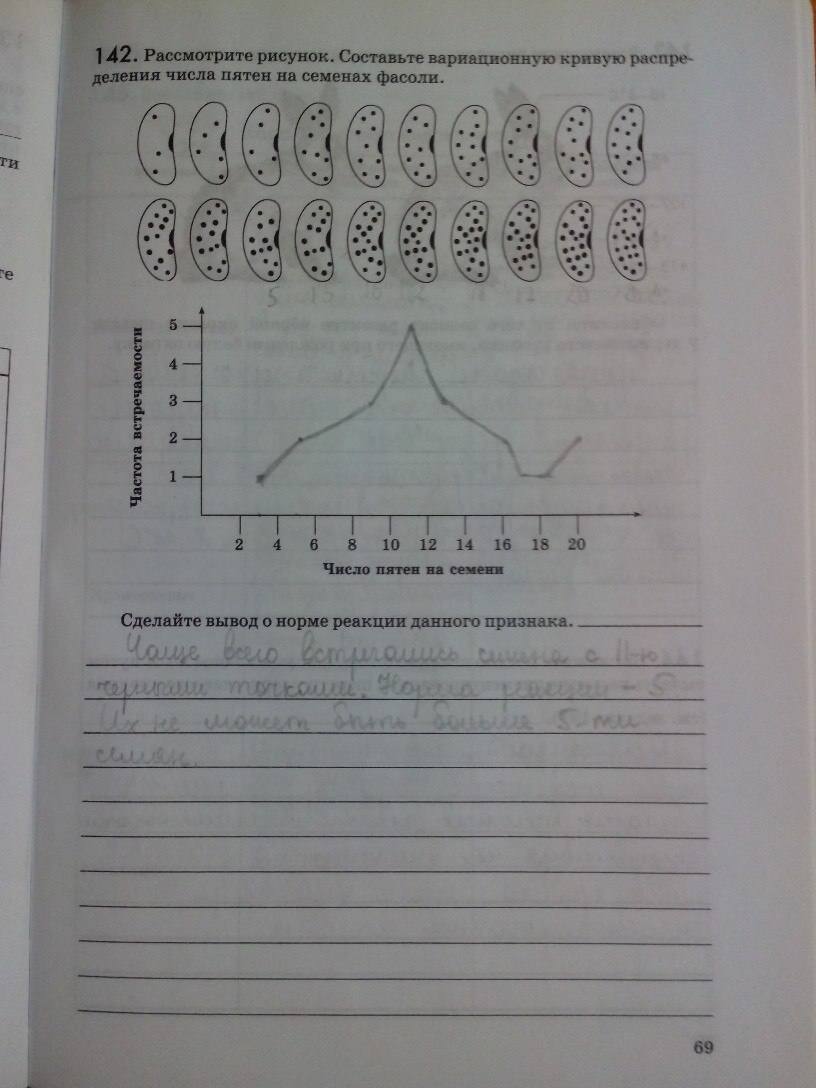 142. Рассмотрите рисунок. Составьте вариационную кривую распре-
деления числа пятен на семенах фасоли.
5
4
3
2
1
Частота встречаемости
2 4 6 8 10 12 14 16 18 20
Число пятен на семени
Сделайте вывод о норме реакции данного признака.
Чаще всего встречались семена с 11-ю
черными точками. Норма реакции - 5
Их не может быть больше 5-ти
семян.
69